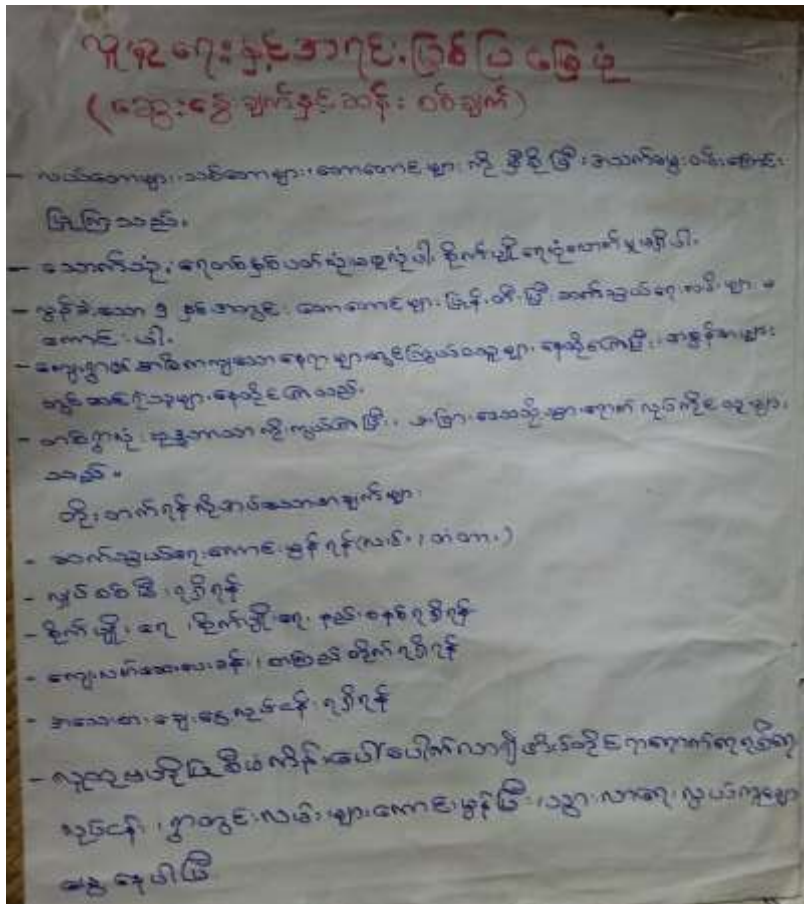 လူမှုရေးနှင့်အရင်းဖြစ်
(ဆွေးနွေးချက်နှင့်ဆန်းစစ်ချက်)
- လယ်တောများ၊ သစ်တောများ၊ တောတောင်များကို မှီခိုပြီး အသက်မွေးဝမ်းကြောင်း
ပြုကြသည်။
- သောက်သုံးရေတစ်နှစ်ပတ်လုံးမဖူလုံပါ၊ စိုက်ပျိုးရေလုံလောက်မှုမရှိပါ။
- လွန်ခဲ့သော ၅ နှစ်အတွင်း တောတောင်များပြုန်းတီးပြီး ဆက်သွယ်ရေးလမ်းများ မ
ကောင်းပါ။
- ကျေးရွာ၏ ကျသောနေရာများတွင် ကြွယ်ဝသူများ နေထိုင်ကြပြီး၊ အစွန်အဖျား
တွင် ဆင်းရဲသူများ နေထိုင်ကြသည်။
- တစ်ရွာလုံး ဗုဒ္ဓဘာသာကိုးကွယ်ကြပြီး၊ အခြားဒေသသို့သွားရောက်လုပ်ကိုင်သူများ
သည်။
တိုးတက်ရန်လိုအပ်သောအချက်များ
- ဆက်သွယ်ရေးကောင်းမွန်ရန် (လမ်း၊ တံတား)
- လျှပ်စစ်မီးရရှိရန်
- စိုက်ပျိုးရေ၊ စိုက်ပျိုးရေးနည်းစနစ်ရရှိရန်
- ကျေးလက်ဆေးပေးခန်း၊ စာကြည့်တိုက်ရရှိရန်
- အသေးစားချေးငွေလုပ်ငန်းရရှိရန်
- လူထုဗဟိုပြုစီမံကိန်းပေါ်ပေါက်လာ၍ ရေရရှိရေး
လုပ်ငန်း၊ ရွာတွင်းလမ်းများကောင်းမွန်ပြီး၊ သွားလာရေးလွယ်ကူချော
မွေ့နေပါပြီ